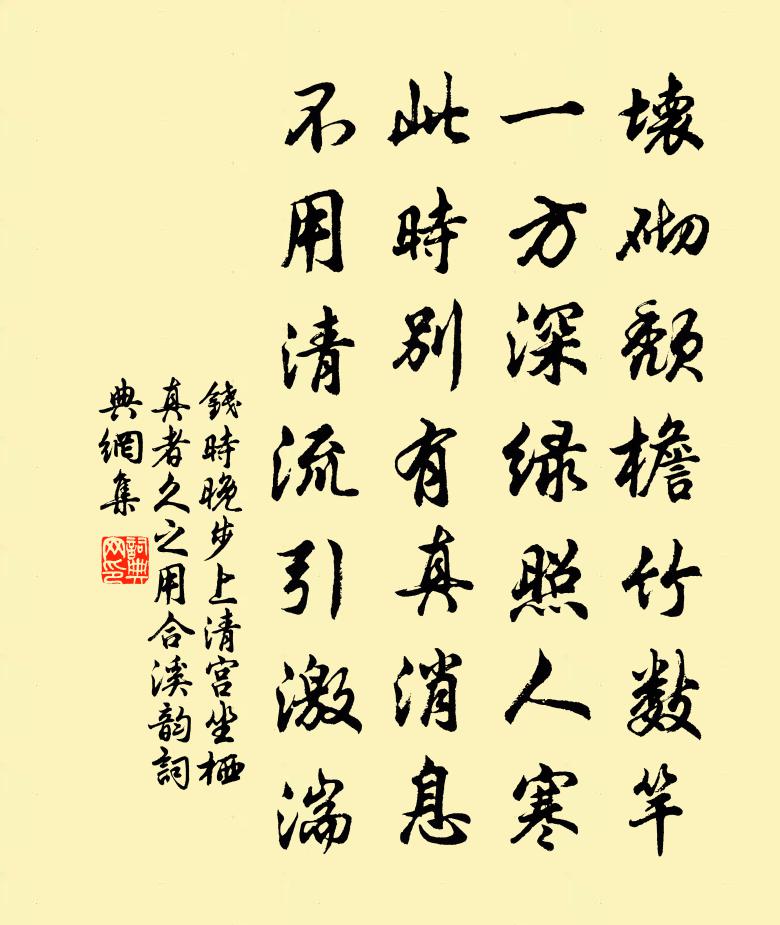 壊砌頽檐竹數竿
一方深緑照人寒
此時別有真消息
不用清流引激湍
錢時晚步上清宮坐栖
真者久之用合溪韵詞
典網集
詞典网印